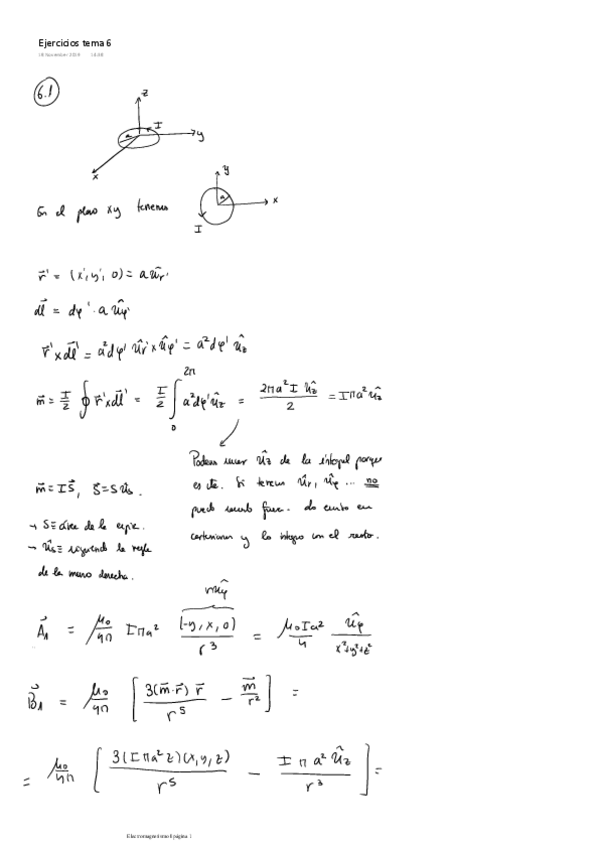 Ejercicios tema 6
6.1
z
I
a
y
x
y
a
x
I
En el plano xy tenemos
r⃗' = (x', y', 0) = a û_r'
dl⃗' = dφ' · a û_φ'
r⃗' × dl⃗' = a² dφ' û_r' × û_φ' = a² dφ' û_z
m⃗ = I/2 ∮ r⃗' × dl⃗' = I/2 ∫₀^2π a² dφ' û_z = 2πa² I û_z / 2 = Iπa² û_z
Podemos sacar û_z de la integral porque
es cte. Si tenemos û_r, û_φ ... no
puedo sacarlo fuera. Lo cambio en
cartesianas y lo integro con el resto.
m⃗ = I S⃗, S⃗ = S û_s.
→ S ≡ área de la espira.
→ û_s ≡ siguiendo la regla
de la mano derecha.
r û_φ
A⃗₁ = μ₀/4π Iπa² (-y, x, 0)/r³ = μ₀Ia²/4 û_φ/(x²+y²+z²)
B⃗₁ = μ₀/4π [ 3(m⃗·r⃗) r⃗ / r⁵ − m⃗/r² ] =
= μ₀/4π [ 3(Iπa² z)(x, y, z) / r⁵ − Iπa² û_z / r³ ] =
Electromagnetismo II página 1